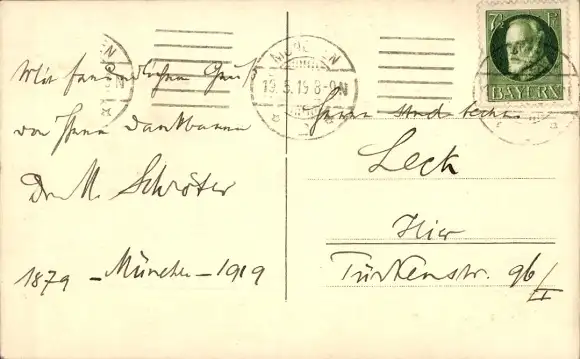 Mit freundlichem Gruß
von Ihrem dankbaren
Dr M. Schröter
1879 – München – 1919
MÜNCHEN
19.3.19 8-9N
7½ Pf
BAYERN
Herrn stud. techn.
Leck
Hier
Türkenstr. 96/II